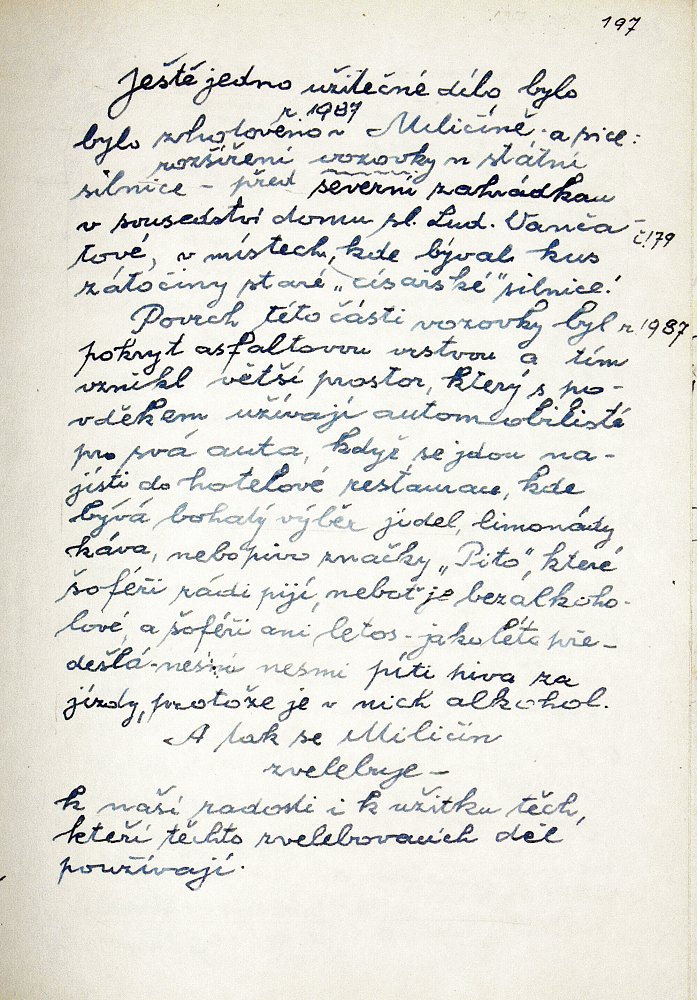 197
Ještě jedno užitečné dílo bylo
r. 1987
bylo zhotoveno v Miličíně - a sice:
rozšíření vozovky u státní
silnice - před severní zahrádkou
v sousedství domu sl. Lud. Vanča-
č. 179
tové, v místech, kde býval kus
zátočiny staré „císařské" silnice!
Povrch této části vozovky byl r. 1987
pokryt asfaltovou vrstvou a tím
vznikl větší prostor, který s po-
vděkem užívají automobilisté
pro svá auta, když se jdou na-
jísti do hotelové restaurace, kde
bývá bohatý výběr jídel, limonády
káva, nebo pivo značky „Pito", které
šoféři rádi pijí, neboť je bezalkoho-
lové, a šoféři ani letos - jako léta pře-
dešlá - nesmí nesmí píti piva za
jízdy, protože je v nich alkohol.
A tak se Miličín
zvelebuje -
k naší radosti i k užitku těch,
kteří těchto zvelebovacích děl
používají.